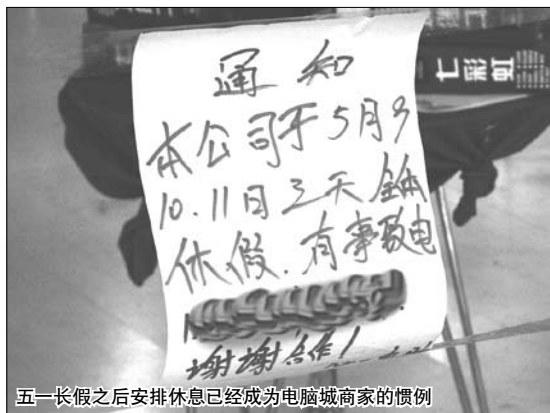 七彩虹
通知
本公司于5月9
10.11日三天全体
休假.有事致电
谢谢合作!
五一长假之后安排休息已经成为电脑城商家的惯例